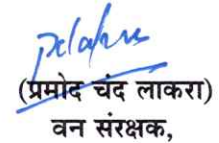 (प्रमोद चंद लाकरा)
वन संरक्षक,